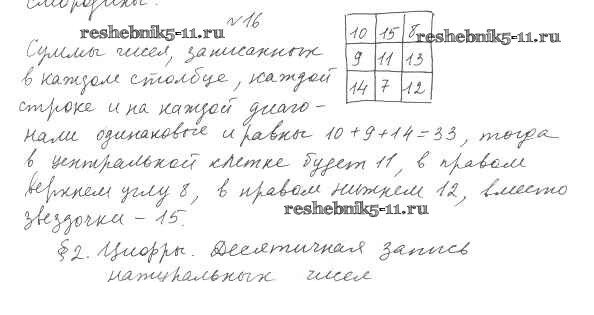 смородины.
№16
reshebnik5-11.ru
10 15 8
reshebnik5-11.ru
Суммы чисел, записанных
9 11 13
в каждом столбце, каждой
14 7 12
строке и на каждой диаго-
нали одинаковые и равны 10+9+14=33, тогда
в центральной клетке будет 11, в правом
верхнем углу 8, в правом нижнем 12, вместо
reshebnik5-11.ru
звездочки – 15.
§2. Цифры. Десятичная запись
натуральных чисел